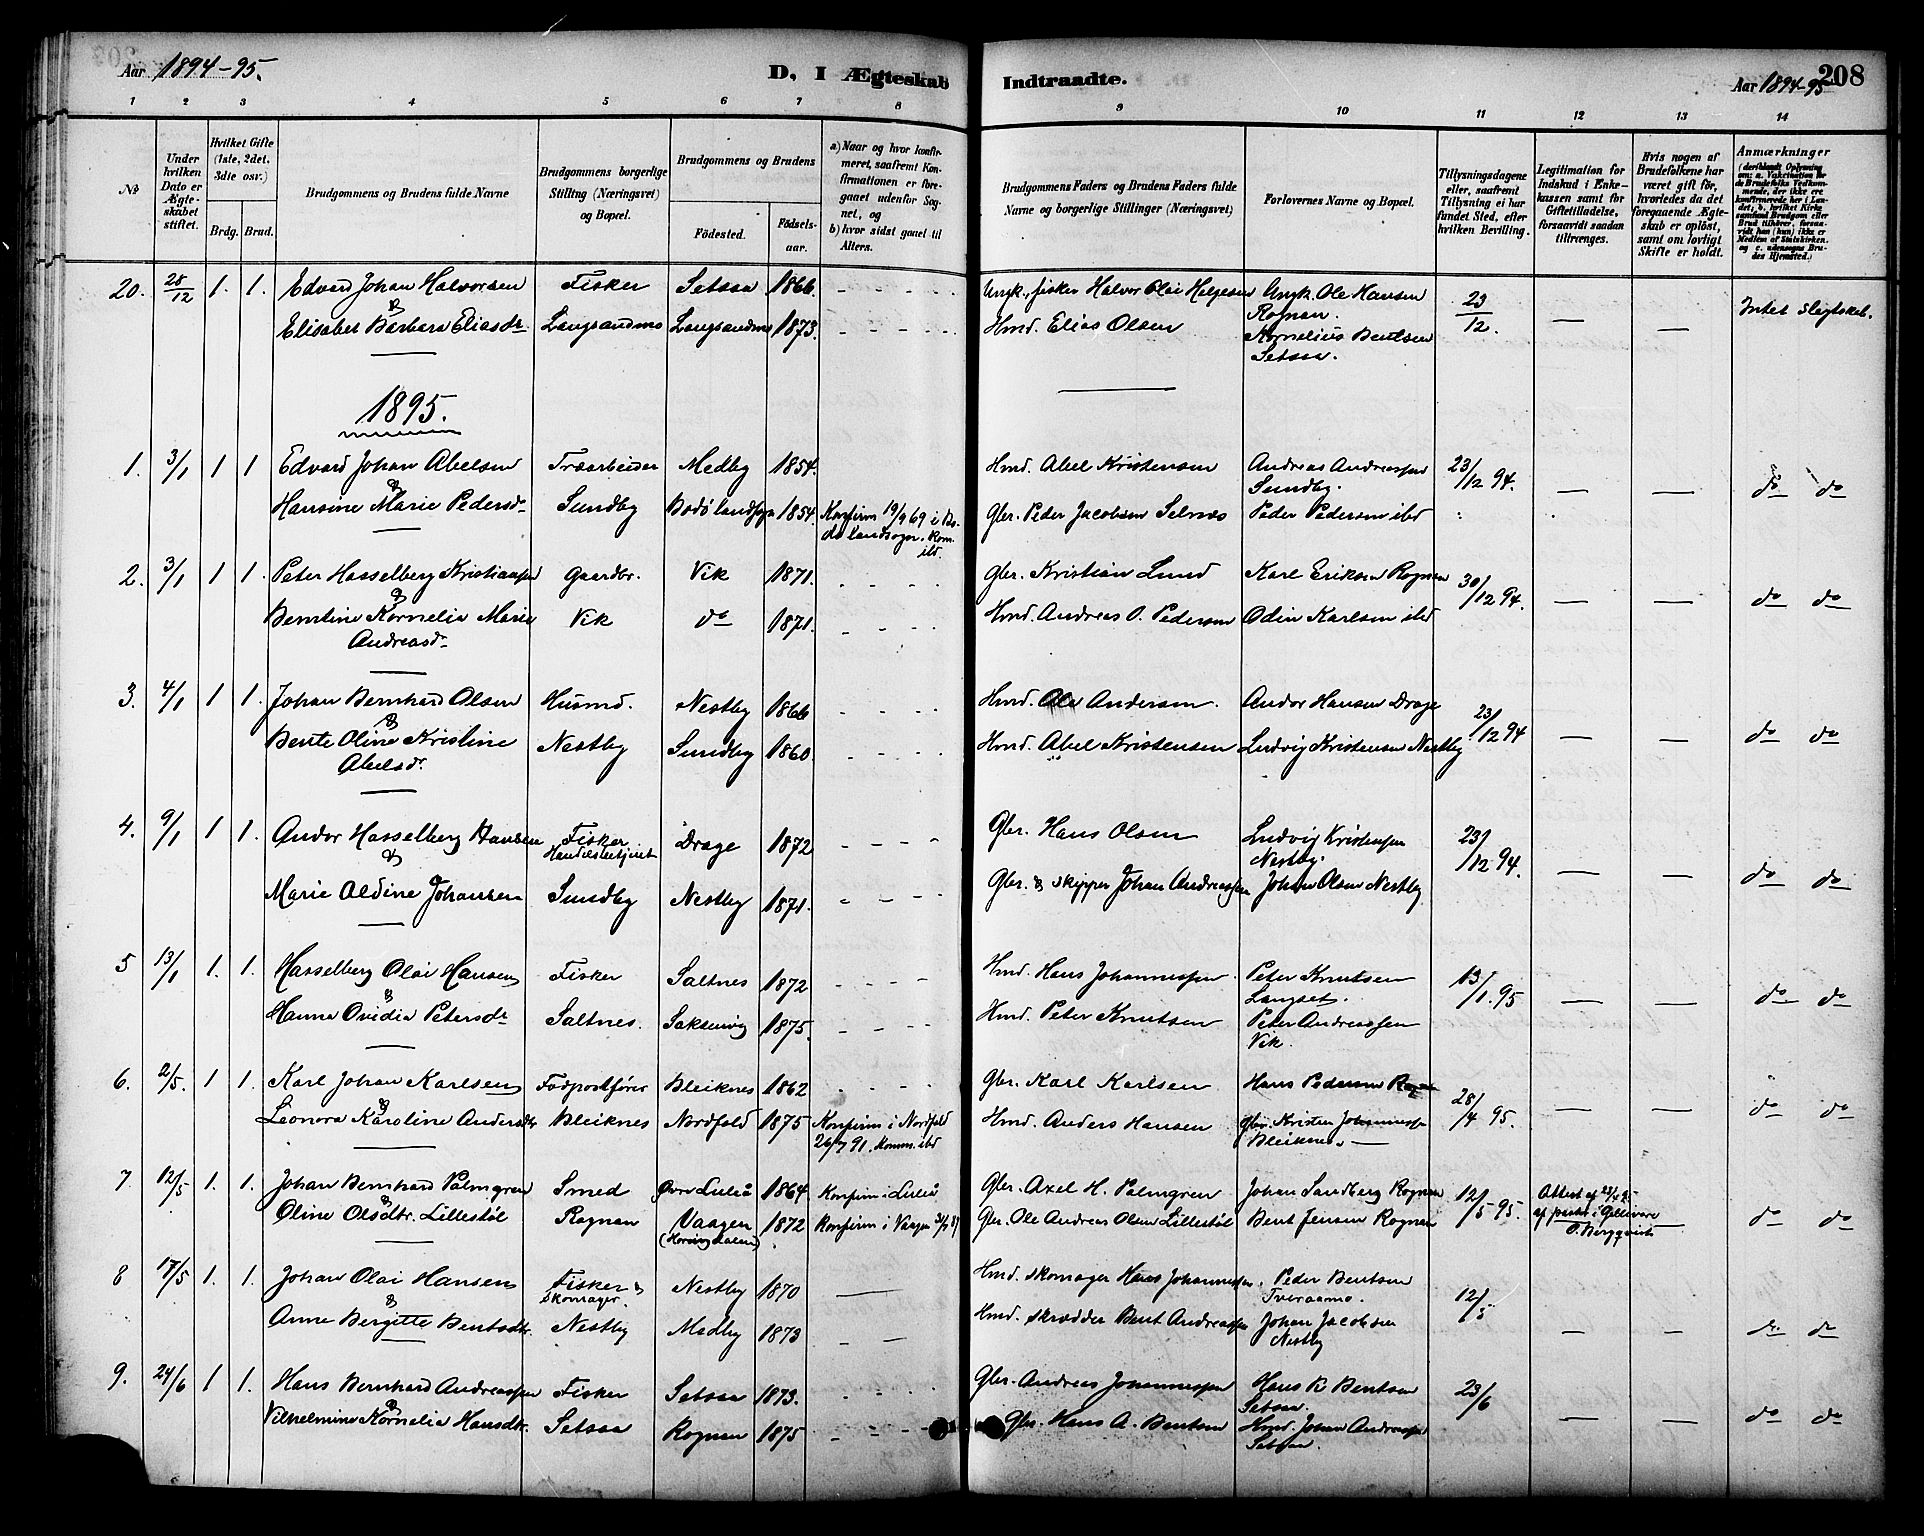 Aar 1894-95.
D, I Ægteskab Indtraadte.
Aar 1894-95
208
1 2 3 4 5 6 7 8 9 10 11 12 13 14
No
Under hvilken Dato er Ægteskabet stiftet.
Hvilket Gifte (1ste, 2det, 3die osv.)
Brdg. Brud.
Brudgommens og Brudens fulde Navne
Brudgommens borgerlige Stilling (Næringsvei) og Bopæl.
Brudgommens og Brudens
Fødested.
Fødselsaar.
a) Naar og hvor konfirmeret, saafremt Konfirmationen er foregaaet udenfor Sognet, og
b) hvor sidst gaaet til Alters.
Brudgommens Faders og Brudens Faders fulde Navne og borgerlige Stillinger (Næringsvei)
Forlovernes Navne og Bopæl.
Tillysningsdagene eller, saafremt Tillysning ei har fundet Sted, efter hvilken Bevilling.
Legitimation for Indskud i Enkekassen samt for Giftetilladelse, forsaavidt saadan tiltrænges.
Hvis nogen af Brudefolkene har været gift før, hvorledes da det foregaaende Ægteskab er opløst, samt om lovligt Skifte er holdt.
Anmærkninger (deriblandt Oplysning om: a. Vaccination for de Brudefolks Vedkommende, der ikke ere konfirmerede her i Landet; b. hvilket Kirkesamfund Brudgom eller Brud tilhører, forsaavidt han (hun) ikke er Medlem af Statskirken, og c. udensogns Brudes Hjemsted.)
20. 28/12 1. 1. Edvard Johan Halvorsen Fisker Setsaa 1866. Ungk., fisker Halvor Olai Helgesen Ungk. Ole Hansen Rognan. 23/12. Intet Slegtskab.
& Elisabet Barbara Eliasdr Langsandmo Langsandmo 1873. Hmd. Elias Olsen Kornelius Bentsen Setsaa.
1895.
1. 3/1 1 1 Edvard Johan Abelsen Træarbeider Medby 1854. Hmd. Abel Kristensen Andreas Andreassen Sundby. 23/12 94. do do
& Hansine Marie Pedersdr Sundby Bodö landsogn 1854. Konfirm 19/9 69 i Bodö landsogn. Kom. ibd. Gbr. Peder Jacobsen Selnæs Peder Pedersen ibd
2. 3/1 1 1. Peter Hasselberg Kristiansen Gaardbr. Vik 1871. Gbr. Kristian Lund Karl Eriksen Rognan 30/12 94. do do
& Bentine Kornelia Marie Andreasdr Vik do 1871. Hmd. Andreas O. Pedersen Odin Karlsen ibd
3. 4/1 1 1. Johan Bernhard Olsen Husmd. Nestby 1866 Hmd. Ole Andersen. Andor Hansen Drage 23/12 94 do do
& Bente Oline Kristine Abelsdr. Nestby Sundby 1860. Hmd. Abel Kristensen Ludvig Kristensen Nestby
4. 9/1 1 1. Andor Hasselberg Hansen Fisker Handelsbetjent Drage 1872 Gbr. Hans Olsen Ludvig Kristensen Nestby. 23/12 94. do do
& Marie Aldine Johansen Sundby Nestby 1871. Gbr. & skipper Johan Andreassen Johan Olsen Nestby
5 13/1 1. 1. Hasselberg Olai Hansen Fisker Saltnes 1872 Hmd. Hans Johannessen Peter Knutsen Langset. 13/1. 95 do do
& Hanna Ovidia Petersdr Saltnes. Saksenvig 1875. Hmd. Peter Knutsen Peter Andreassen Vik.
6. 2/5. 1 1. Karl Johan Karlsen Fodpostfører Bleiknes 1862 Gbr. Karl Karlsen Hans Pedersen 28/4 95. do do
& Leonora Karoline Andersdtr Bleiknes Nordfold 1875 Konfirm i Nordfold 26/7 91. Komm. ibd Hmd. Anders Hansen Gbr. Kristen Bleiknes.
7 12/5 1. 1. Johan Bernhard Palmgren Smed Övre Luleå 1864. Konfirm i Luleå Gbr. Axel H. Palmgren Johan Sandberg Rognan 12/5 95. Attest af af pastor i Gellivare Bergqvist do do
& Oline Olsdtr. Lillestöl Rognan Vaagen 1872 Konfirm i Vaagen Gbr. Ole Andreas Olsen Lillestöl Bent Jensen Rognan
8 17/5 1. 1. Johan Olai Hansen Fisker & skomager. Nestby 1870 Hmd. skomager Hans Johannessen. Peder Bentsen Tveraamo. 12/5 do do
& Anne Bergitte Bentsdtr. Nestby Medby 1873 Hmd. skrædder Bent Andreassen Johan Jacobsen Nestby
9. 24/6 1 1. Hans Bernhard Andreassen Fisker Setsaa 1873. Gbr. Andreas Johannessen Hans B Bentsen Setsaa. 23/6 do do
& Vilhelmine Kornelia Hansdtr. Setsaa Rognan 1875 Gbr. Hans A. Bentsen Hmd. Johan Andreassen Setsaa.